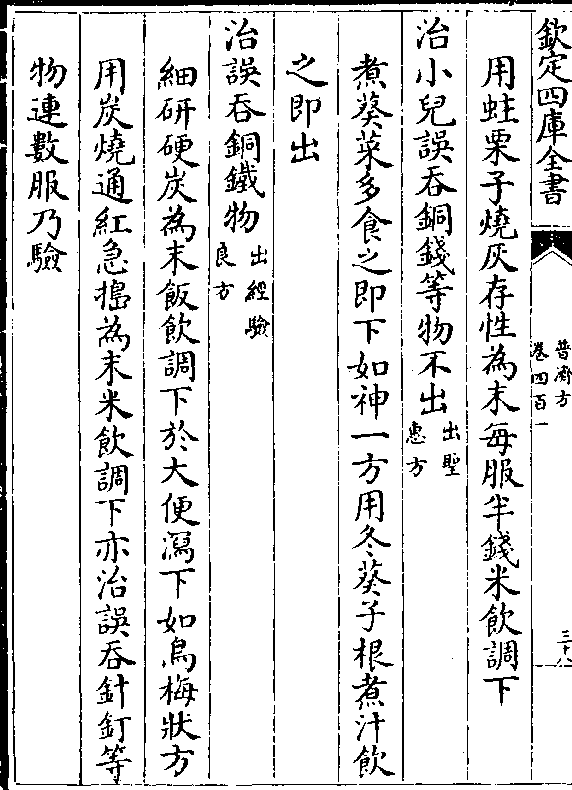 欽定四庫全書
普濟方
卷四百一
三十八
用蛀栗子燒灰存性為末每服半錢米飲調下
治小兒誤吞銅錢等物不出出聖惠方
煮葵菜多食之即下如神一方用冬葵子根煮汁飲
之即出
治誤吞銅鐵物出經驗良方
細研硬炭為末飯飲調下於大便瀉下如烏梅狀方
用炭燒通紅急搗為末米飲調下亦治誤吞針釘等
物連數服乃驗